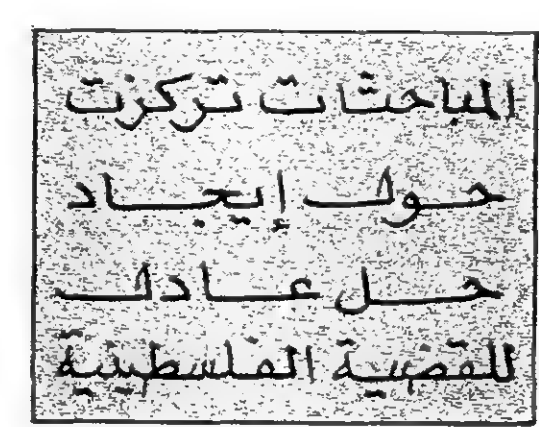 المباحثات تركزت
حول إيجاد
حل عادل
للقضية الفلسطينية